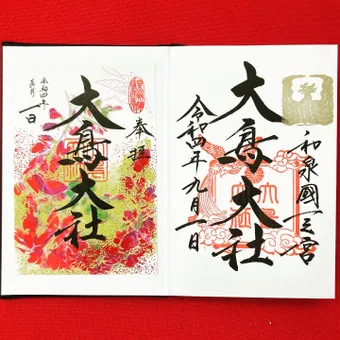 和泉國一之宮
大鳥大社
令和四年九月一日
奉拝
大鳥大社
令和四年
一日